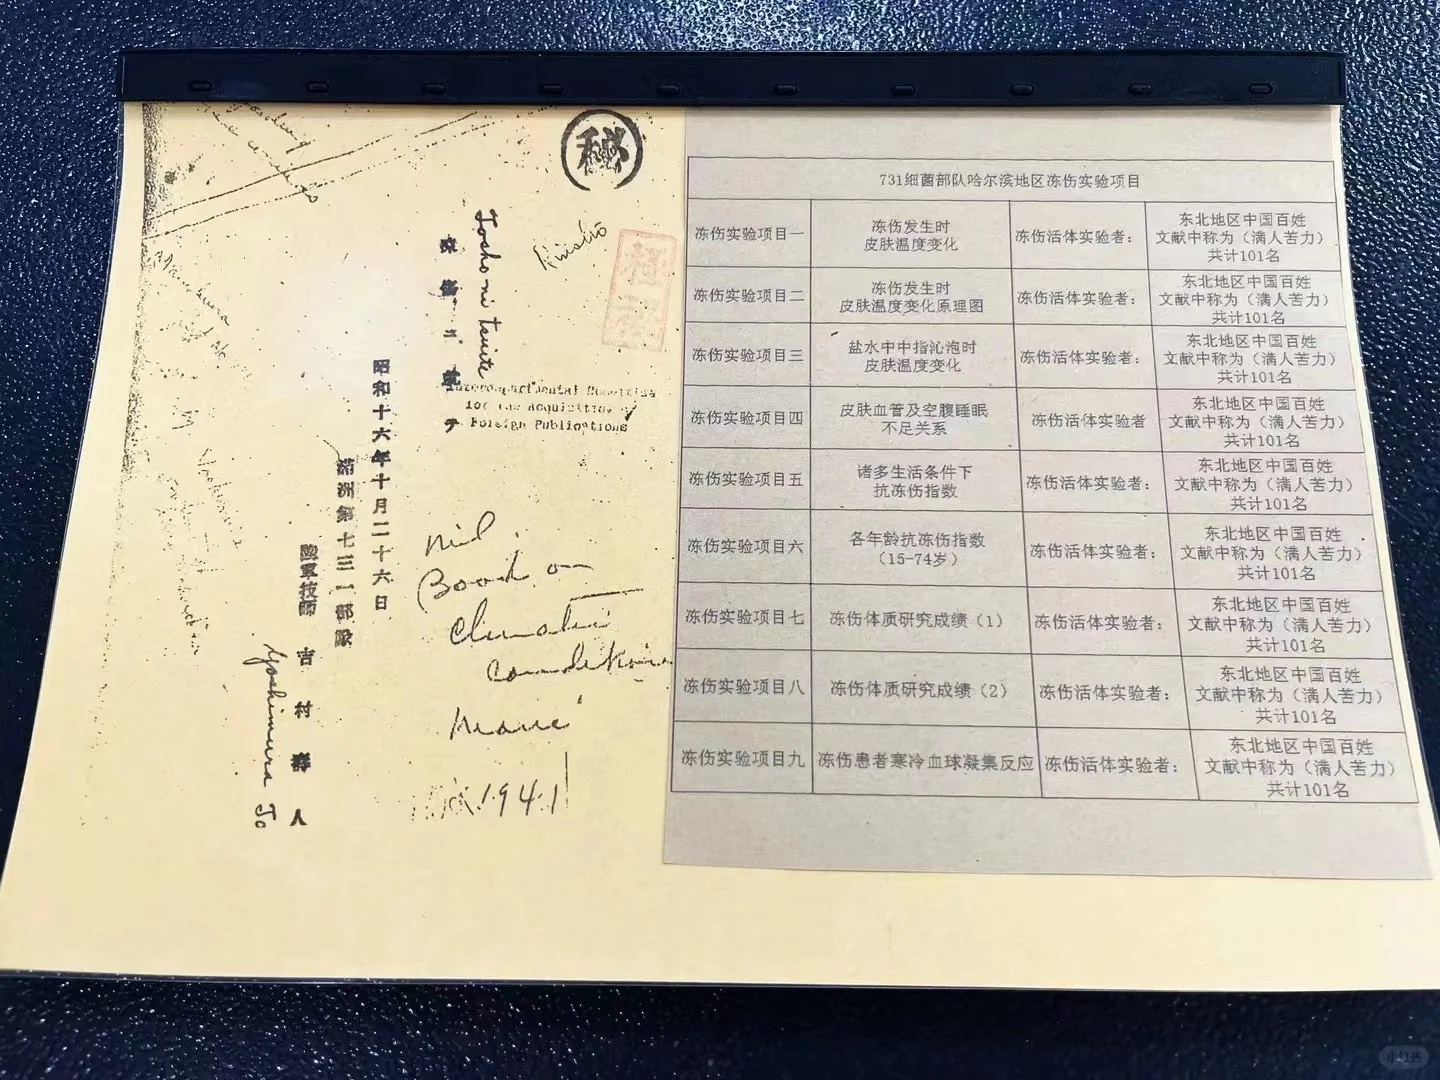 秘
極秘
Toshoni tsuite
凍傷ニ就テ
Interdepartmental Committee
for the Acquisition of
Foreign Publications
昭和十六年十月二十六日
満洲第七三一部隊
陸軍技師
吉村壽人
Yoshimura To
Book on
Climatic
1941
731细菌部队哈尔滨地区冻伤实验项目
冻伤实验项目一 冻伤发生时 冻伤活体实验者： 东北地区中国百姓
皮肤温度变化 文献中称为（满人苦力）
共计101名
冻伤实验项目二 冻伤发生时 冻伤活体实验者： 东北地区中国百姓
皮肤温度变化原理图 文献中称为（满人苦力）
共计101名
冻伤实验项目三 盐水中中指沁泡时 冻伤活体实验者： 东北地区中国百姓
皮肤温度变化 文献中称为（满人苦力）
共计101名
冻伤实验项目四 皮肤血管及空腹睡眠 冻伤活体实验者 东北地区中国百姓
不足关系 文献中称为（满人苦力）
共计101名
冻伤实验项目五 诸多生活条件下 冻伤活体实验者： 东北地区中国百姓
抗冻伤指数 文献中称为（满人苦力）
共计101名
冻伤实验项目六 各年龄抗冻伤指数 冻伤活体实验者： 东北地区中国百姓
（15-74岁） 文献中称为（满人苦力）
共计101名
冻伤实验项目七 冻伤体质研究成绩（1） 冻伤活体实验者： 东北地区中国百姓
文献中称为（满人苦力）
共计101名
冻伤实验项目八 冻伤体质研究成绩（2） 冻伤活体实验者： 东北地区中国百姓
文献中称为（满人苦力）
共计101名
冻伤实验项目九 冻伤患者寒冷血球凝集反应 冻伤活体实验者： 东北地区中国百姓
文献中称为（满人苦力）
共计101名
小红书